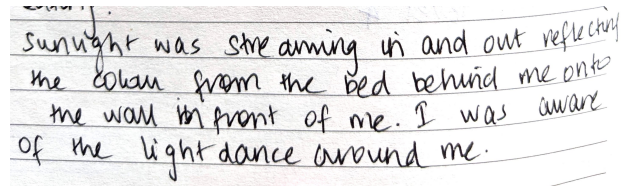 sunlight was streaming in and out reflecting
the colour from the bed behind me onto
the wall in front of me. I was aware
of the light dance around me.